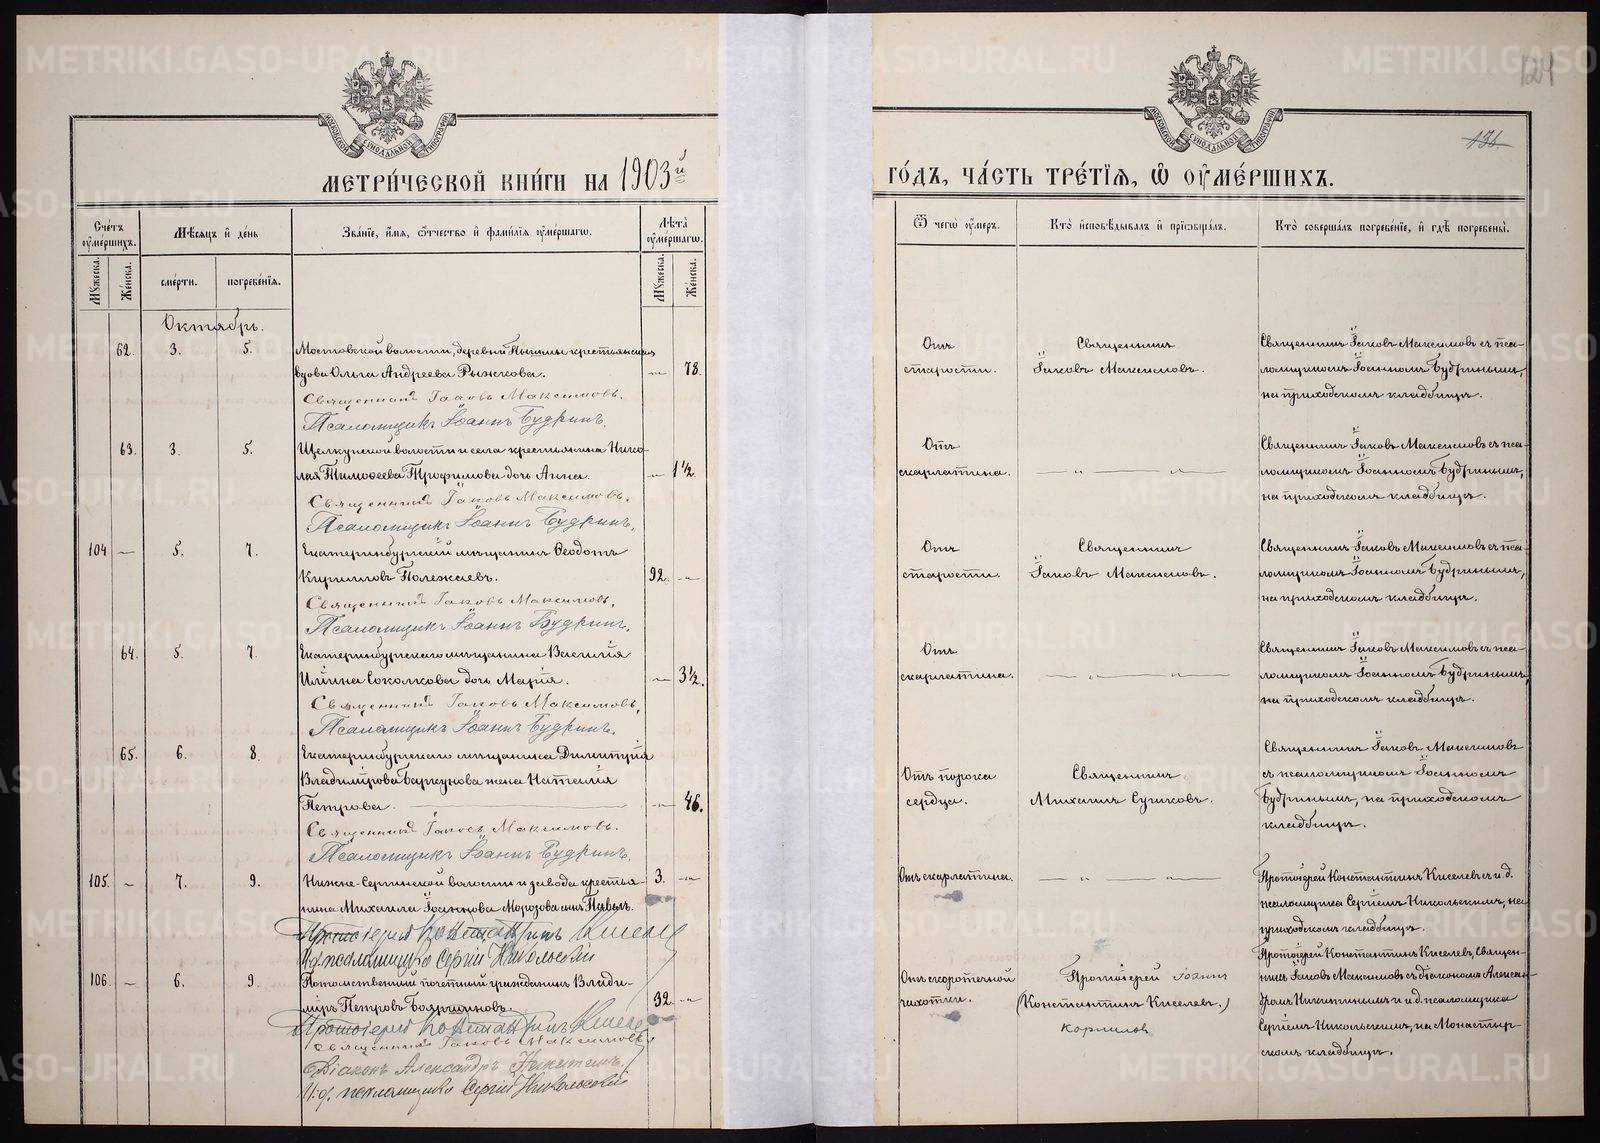 124
136
МЕТРИ́ЧЕСКОЙ КНИ́ГИ НА 1903й ГО́ДЪ, ЧА́СТЬ ТРЕ́ТІѦ, Ѡ ОУМЕ́РШИХЪ.
МОСКОВСКОЙ СѴНОДАЛЬНОЙ ТИПОГРАФІИ
МОСКОВСКОЙ СѴНОДАЛЬНОЙ ТИПОГРАФІИ
Сче́тъ оуме́ршихъ.
Мѣ́сяцъ и де́нь
Зва́ніе, и́мя, ѻ́тчество и фами́лія оуме́ршагѡ.
Лѣ́та оуме́ршагѡ.
Ѿ чегѡ̀ оу́меръ.
Кто̀ исповѣ́дывалъ и пріѡбща́лъ.
Кто̀ соверша́лъ погребе́ніе, и гдѣ̀ погребены̀.
Мꙋ́жеска.
Же́нска.
сме́рти.
погребе́нія.
Мꙋ́жеска.
Же́нска.
Октябрь.
62. 3. 5.
Мостовской волости, деревни Пышмы крестьянская
вдова Ольга Андреева Рыжкова. — 78.
Священникъ Іаковъ Максимовъ.
Псаломщикъ Іоаннъ Будринъ.
Отъ
старости.
Священникъ
Іаковъ Максимовъ.
Священникъ Іаковъ Максимовъ съ пса-
ломщикомъ Іоанномъ Будринымъ,
на приходскомъ кладбищѣ.
63. 3. 5.
Щелкунской волости и села крестьянина Нико-
лая Тимоѳеева Трофимова дочь Анна. — 1½
Священникъ Іаковъ Максимовъ.
Псаломщикъ Іоаннъ Будринъ.
Отъ
скарлатина.
— „ — „ —
Священникъ Іаковъ Максимовъ съ пса-
ломщикомъ Іоанномъ Будринымъ,
на приходскомъ кладбищѣ.
104 — 5. 7.
Екатеринбургскій мѣщанинъ Ѳеодотъ
Кирилловъ Полежаевъ. 92. —
Священникъ Іаковъ Максимовъ.
Псаломщикъ Іоаннъ Будринъ.
Отъ
старости.
Священникъ
Іаковъ Максимовъ.
Священникъ Іаковъ Максимовъ съ пса-
ломщикомъ Іоанномъ Будринымъ,
на приходскомъ кладбищѣ.
64. 5. 7.
Екатеринбургскаго мѣщанина Василія
Ильина Соколкова дочь Марія. — 3½.
Священникъ Іаковъ Максимовъ,
Псаломщикъ Іоаннъ Будринъ.
Отъ
скарлатина.
— „ — „ —
Священникъ Іаковъ Максимовъ съ пса-
ломщикомъ Іоанномъ Будринымъ,
на приходскомъ кладбищѣ.
65. 6. 8.
Екатеринбургскаго мѣщанина Димитрія
Владимірова Баркунова жена Наталія
Петрова. — 46.
Священникъ Іаковъ Максимовъ.
Псаломщикъ Іоаннъ Будринъ.
Отъ порока
сердца.
Священникъ
Михаилъ Сушковъ.
Священникъ Іаковъ Максимовъ
съ псаломщикомъ Іоанномъ
Будринымъ, на приходскомъ
кладбищѣ.
105. — 7. 9.
Нижне-Сергинской волости и завода крестья- 3. —
нина Михаила Іоаннова Морозова сынъ Павелъ.
Протоіерей Константинъ Киселевъ
И.д. псаломщика Сергій Никольскій
Отъ скарлатина.
— „ — „ —
Протоіерей Константинъ Киселевъ съ и.д.
псаломщика Сергіемъ Никольскимъ, на
приходскомъ кладбищѣ.
106. — 6. 9.
Потомственный почетный гражданинъ Влади-
міръ Петровъ Бояршиновъ. 32. —
Протоіерей Константинъ Киселевъ
Священникъ Іаковъ Максимовъ
Діаконъ Александръ Никитинъ
И.д. псаломщика Сергій Никольскій
Отъ скоротечной
чахотки.
Протоіерей Іоаннъ
(Константинъ Киселевъ.)
Корнилов
Протоіерей Константинъ Киселевъ, Священ-
никъ Іаковъ Максимовъ съ діакономъ Алексан-
дромъ Никитинымъ и и.д. псаломщика
Сергіемъ Никольскимъ, на Монастыр-
скомъ кладбищѣ.
METRIKI.GASO-URAL.RU